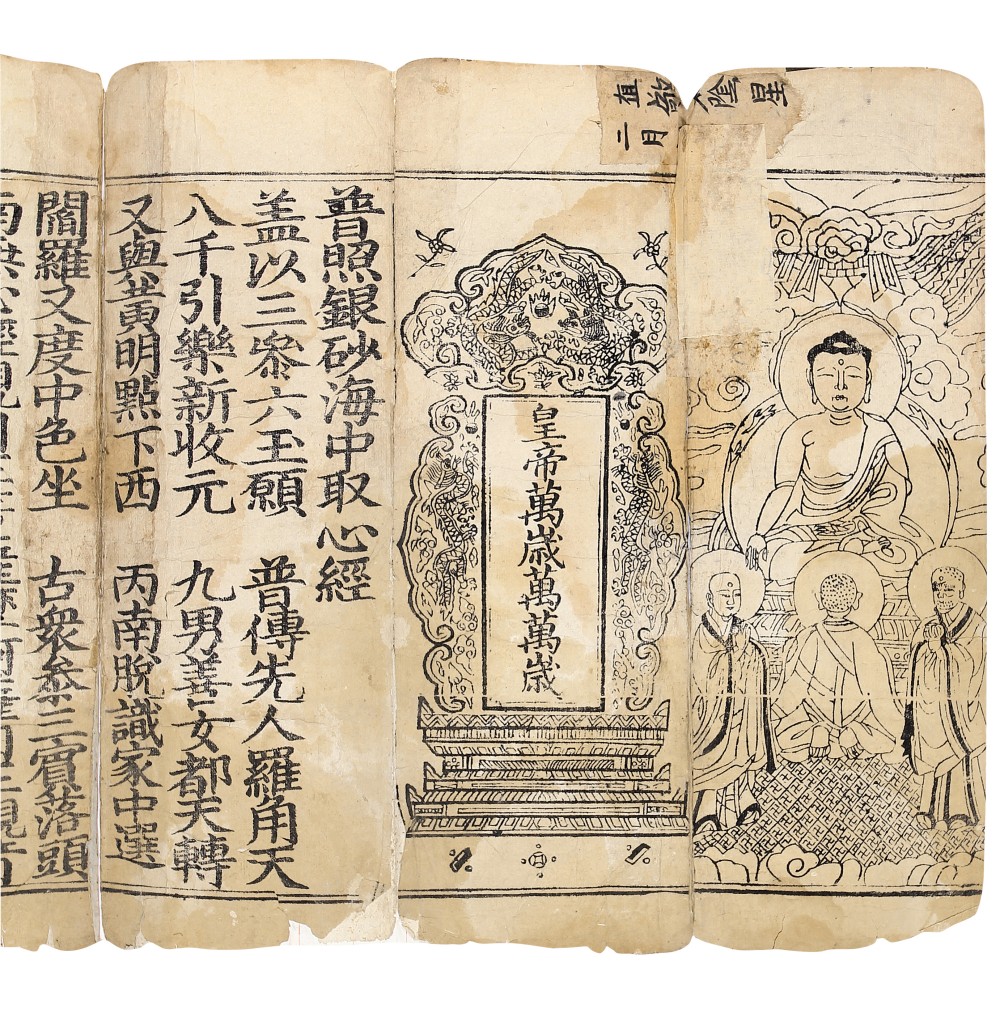 星
陰
二月
皇帝萬歲萬萬歲
普照銀砂海中取心經
盖以三叅六玉願 普傳先人羅角天
八千引樂新收元 九男善女都天轉
又與黃明點下西 丙南脫識家中選
閻羅又度中色坐 古衆叅三寳落頭